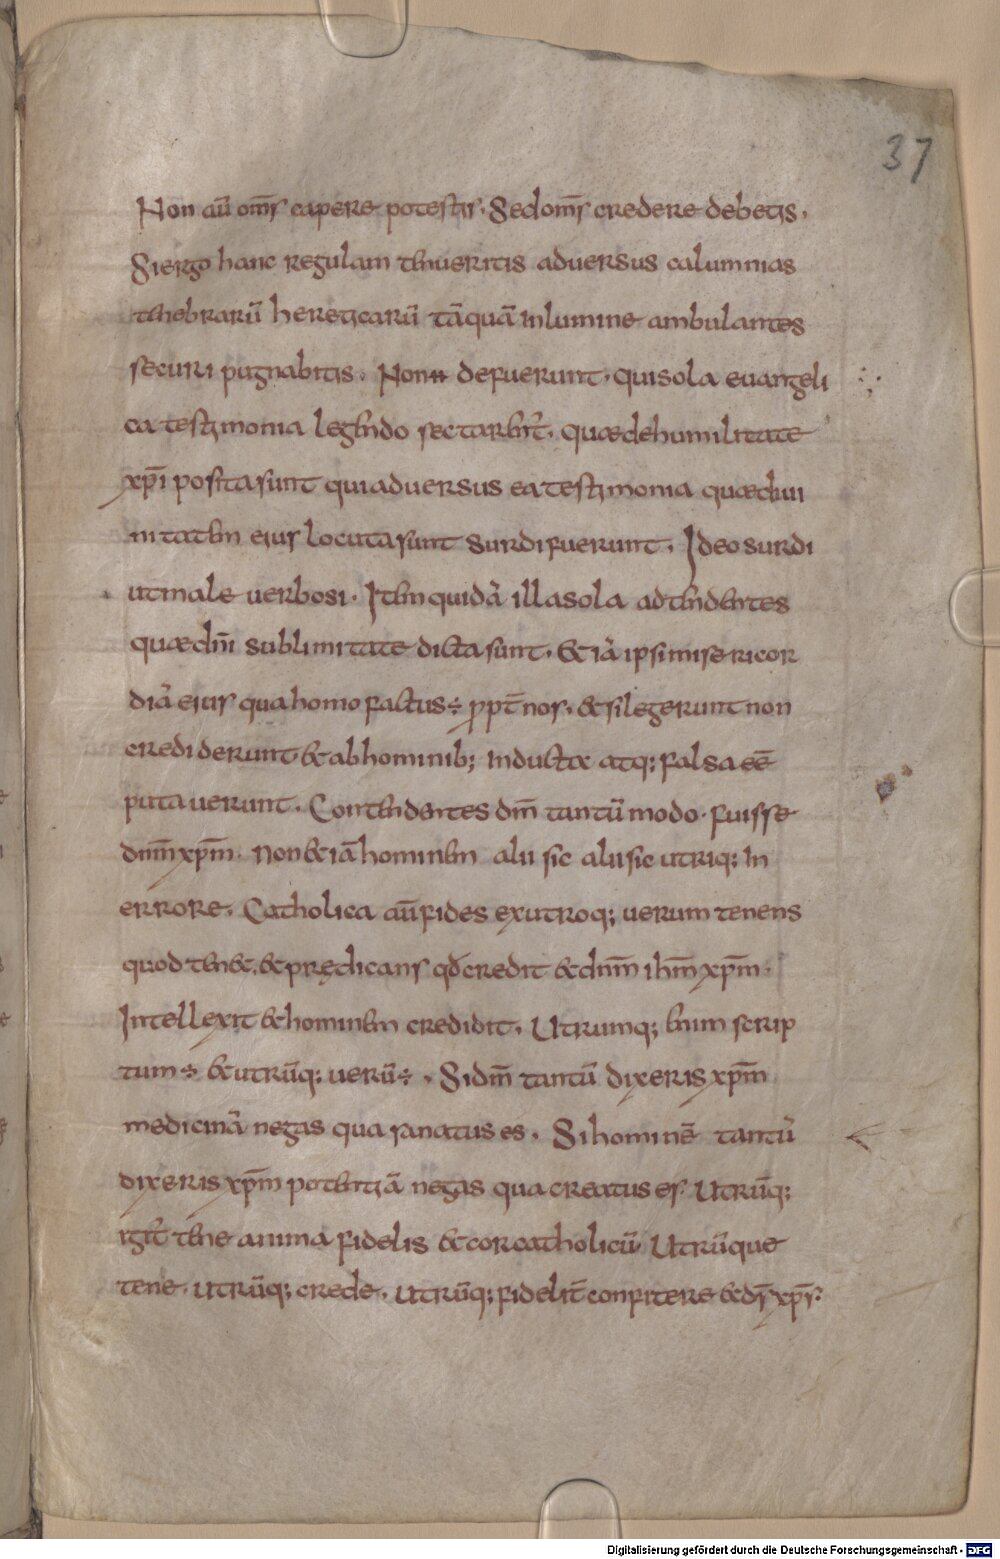 37
Non aū om̄s capere potestis. Sed om̄s credere debetis.
Si ergo hanc regulam tenueritis adversus calumnias
tenebrarū hereticarū tāquā in lumine ambulantes
securi pugnabitis. Non defuerunt. qui sola evangeli
ca testimonia legendo sectarent̄. quæ de humilitate
xp̄i posita sunt qui adversus ea testimonia quæ divi
nitatem eius locuta sunt surdi fuerunt. Ideo surdi
ut male verbosi. Item quidā illa sola adtendentes
quæ dn̄i sublimitate dicta sunt. & iā ipsi misericor
diā eius qua homo factus ÷ ꝓpt̄ nos. & si legerunt non
crediderunt & ab hominib; inductæ atq; falsa eē
putaverunt. Contendentes dm̄ tantūmodo. fuisse
dnm̄ xp̄m. Non & iā hominem alii sic alii sic utriq; in
errore. Catholica aū fides ex utroq; verum tenens
quod ten&. & prędicans qđ credit & dnm̄ ihm̄ xp̄m.
Intellexit & hominem credidit. Utrumq; enim scrip
tum ÷ & utrūq; verū ÷. Si dm̄ tantū dixeris xp̄m
medicinā negas qua sanatus es. Si hominē tantū
dixeris xp̄m potentiā negas qua creatus es. Utrūq;
igit̄ tene anima fidelis & cor catholicū Utrūque
tene. utrūq; crede. utrūq; fidelit̄ confitere & ds̄ xp̄s.
Digitalisierung gefördert durch die Deutsche Forschungsgemeinschaft - DFG